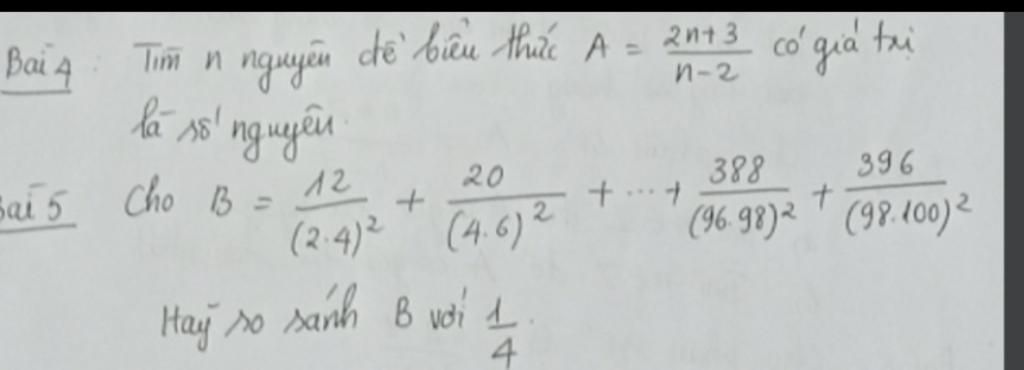 Bài 4: Tìm n nguyên để biểu thức A = \frac{2n+3}{n-2} có giá trị
là số nguyên.
Bài 5 Cho B = \frac{12}{(2.4)^2} + \frac{20}{(4.6)^2} + ... + \frac{388}{(96.98)^2} + \frac{396}{(98.100)^2}
Hãy so sánh B với \frac{1}{4}.